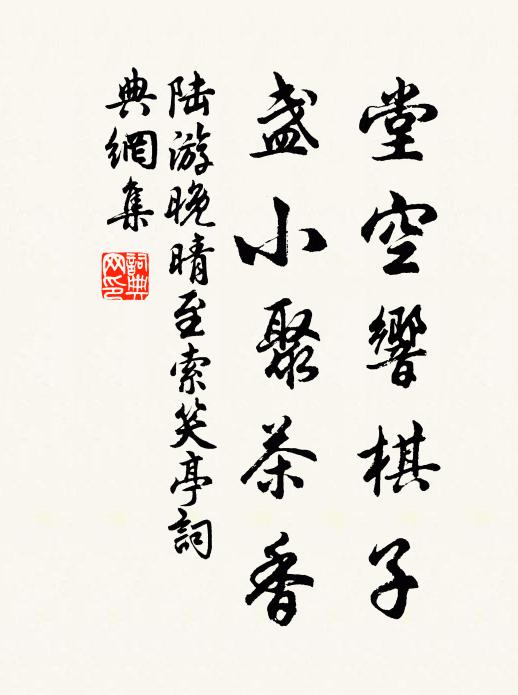 堂空響棋子
盏小聚茶香
陆游晚晴至索笑亭詞
典網集
詞典
网印